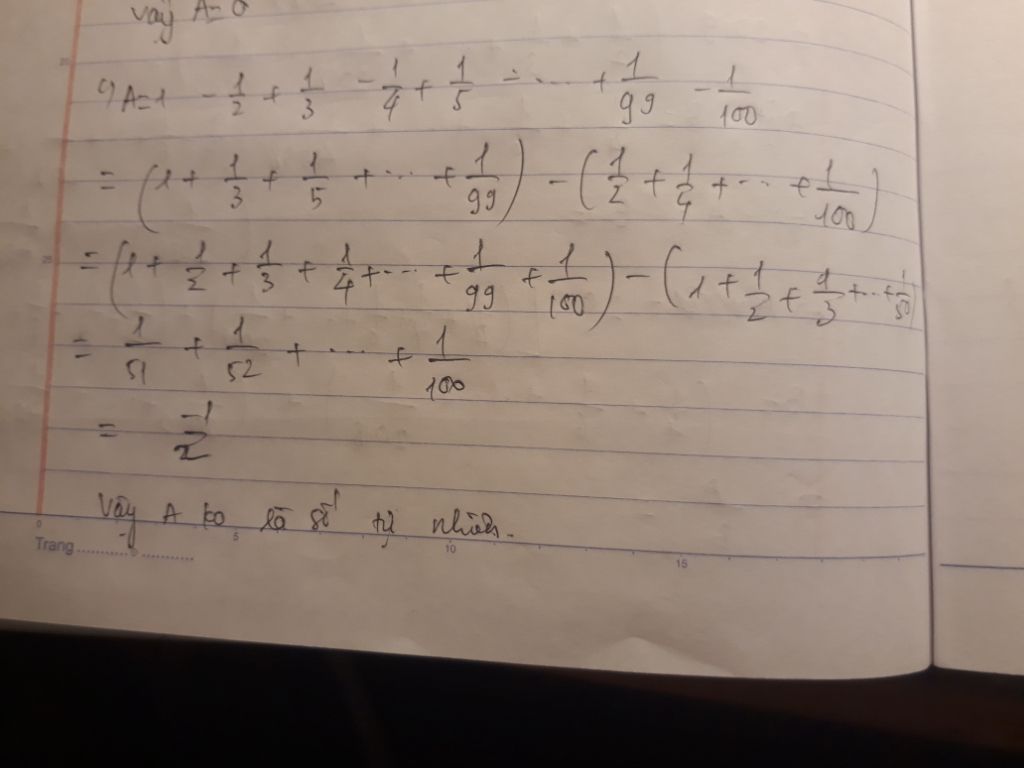 vậy A=0
c, A=1 - 1/2 + 1/3 - 1/4 + 1/5 - ... + 1/99 - 1/100
= (1 + 1/3 + 1/5 + ... + 1/99) - (1/2 + 1/4 + ... + 1/100)
= (1 + 1/2 + 1/3 + 1/4 + ... + 1/99 + 1/100) - (1 + 1/2 + 1/3 + ... + 1/50)
= 1/51 + 1/52 + ... + 1/100
= -1/2
Vậy A ko là số tự nhiên.
Trang
0 5 10 15